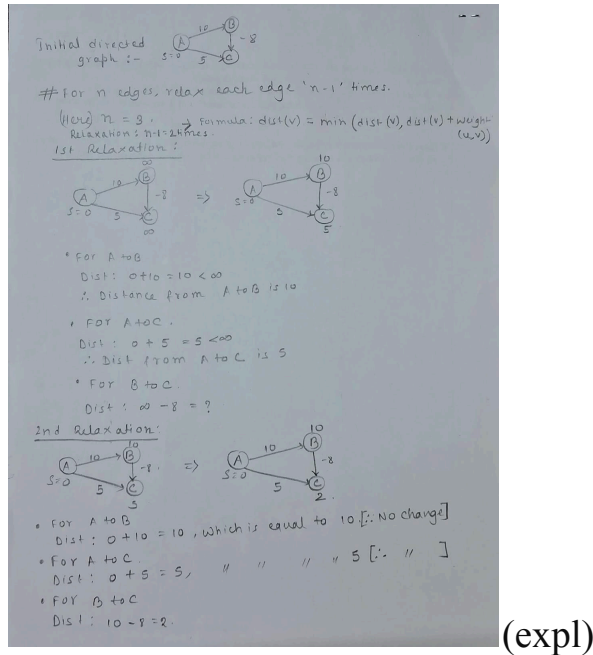 Initial directed
graph :-
10
B
A
-8
S=0
5
C
# For n edges, relax each edge 'n-1' times.
(Here) n = 3.
→ Formula: dist(v) = min (dist(v), dist(v) + weight
(u,v))
Relaxation : n-1 = 2 times.
1st Relaxation :
∞
10
B
A
-8
S=0
5
C
∞
=>
10
10
B
A
-8
S=0
5
C
5
• For A to B
Dist : 0+10 = 10 < ∞
∴ Distance from A to B is 10
• For A to C.
Dist : 0 + 5 = 5 < ∞
∴ Dist from A to C is 5
• For B to C.
Dist : ∞ - 8 = ?
2nd Relaxation:
10
10
B
A
-8
S=0
5
C
5
=>
10
10
B
A
-8
S=0
5
C
2.
• For A to B
Dist : 0+10 = 10, which is equal to 10. [∴ No change]
• For A to C
Dist : 0 + 5 = 5, " " " " 5 [∴ " ]
• For B to C
Dist : 10 - 8 = 2.
(expl)